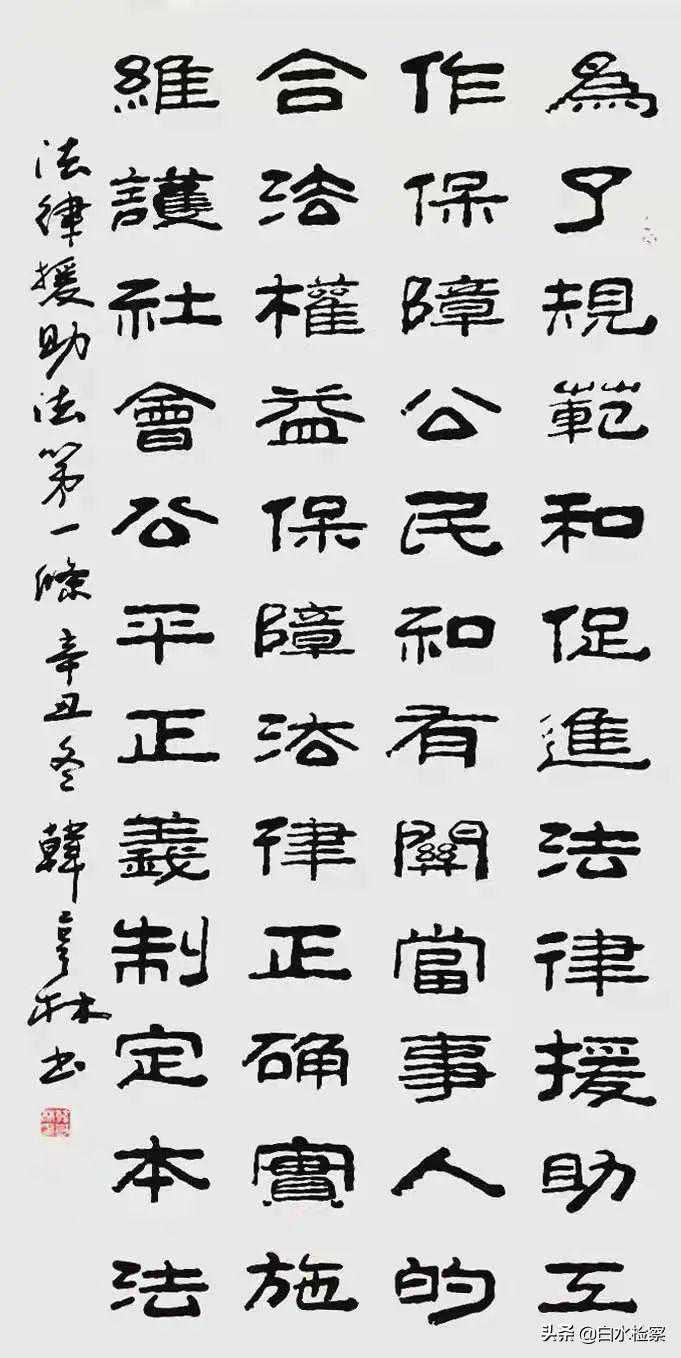 為了規範和促進法律援助工
作保障公民和有關當事人的
合法權益保障法律正确實施
維護社會公平正義制定本法
法律援助法第一條 辛丑冬 韓亨林书
头条 @白水检察